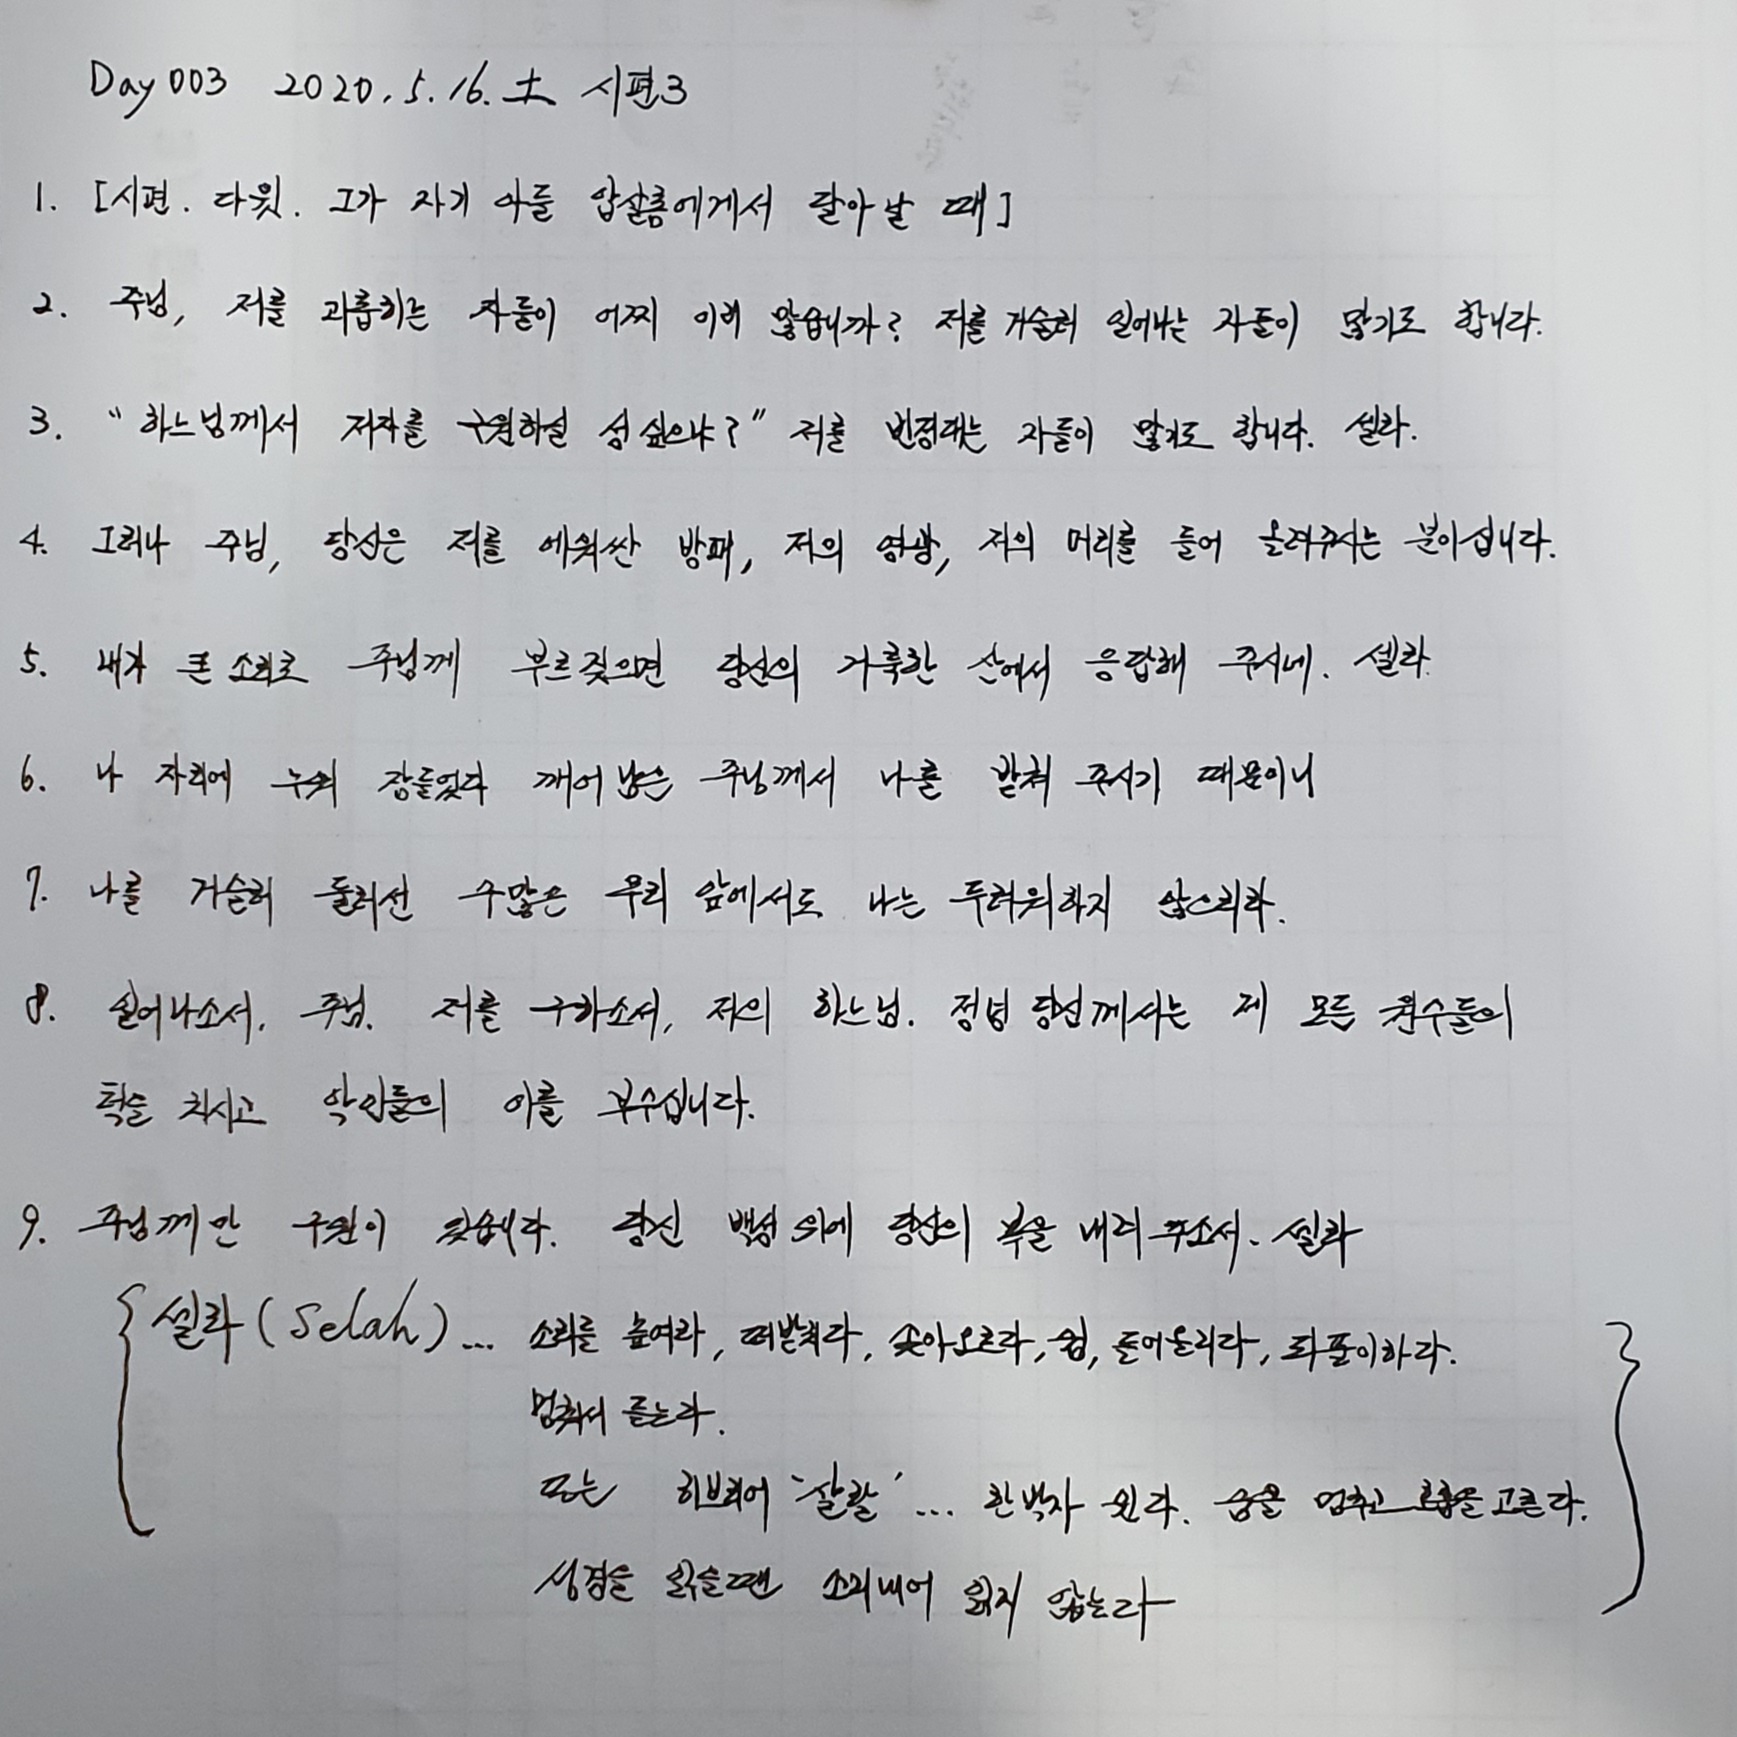 Day 003 2020. 5. 16. 土 시편3
1. [시편. 다윗. 그가 자기 아들 압살롬에게서 달아날 때]
2. 주님, 저를 괴롭히는 자들이 어찌 이리 많습니까? 저를 거슬러 일어나는 자들이 많기도 합니다.
3. "하느님께서 저자를 구원하실 성 싶으냐?" 저를 빈정대는 자들이 많기도 합니다. 셀라.
4. 그러나 주님, 당신은 저를 에워싼 방패, 저의 영광, 저의 머리를 들어 올려주시는 분이십니다.
5. 내가 큰 소리로 주님께 부르짖으면 당신의 거룩한 산에서 응답해 주시네. 셀라.
6. 나 자리에 누워 잠들었다 깨어남은 주님께서 나를 받쳐 주시기 때문이니
7. 나를 거슬러 둘러선 수많은 무리 앞에서도 나는 두려워하지 않으리라.
8. 일어나소서, 주님. 저를 구하소서, 저의 하느님. 정녕 당신께서는 제 모든 원수들의
턱을 치시고 악인들의 이를 부수십니다.
9. 주님께만 구원이 있습니다. 당신 백성 위에 당신의 복을 내려 주소서. 셀라
{ 셀라 (Selah) ... 소리를 높여라, 떠받쳐라, 솟아오르다, 쉼, 들어올리다, 되풀이하다. }
멈춰서 듣는다.
또는 히브리어 '살랄' ... 한 박자 쉰다. 숨을 멈추고 호흡을 고른다.
성경을 읽을땐 소리내어 읽지 않는다